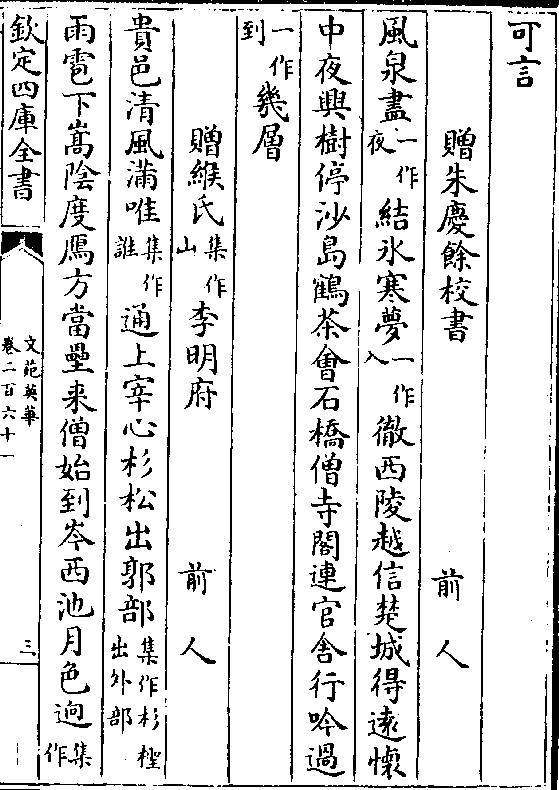 可言
贈朱慶餘校書　前人
風泉盡一作夜結氷寒夢一作入徹西陵越信楚城得遠懷
中夜興樹停沙島鶴茶㑹石橋僧寺閣連官舎行吟過
一作到幾層
贈緱氏集作山李明府　前人
貴邑清風滿唯集作誰通上宰心杉松出郭部集作杉檉出外部
雨雹下嵩陰度鴈方當壘来僧始到岑西池月色逈集作
欽定四庫全書
文苑英華
卷二百六十一
三